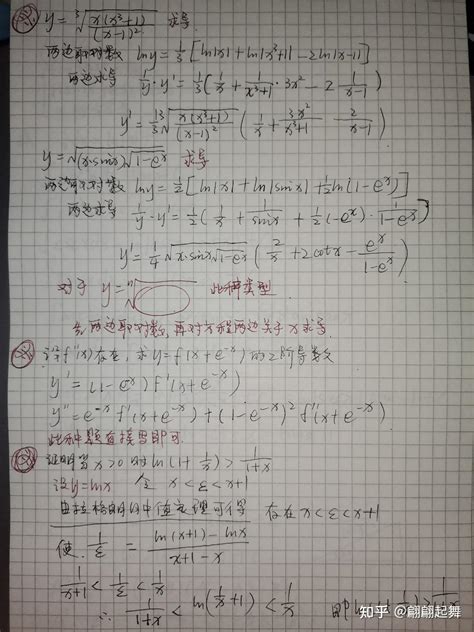 y = ∛(x(x³+1)/(x-1)²) 求导
两边取对数 lny = 1/3 [ln|x| + ln|x³+1| - 2ln|x-1|]
两边求导 1/y · y' = 1/3 (1/x + 1/(x³+1) · 3x² - 2 1/(x-1))
y' = 1/3 ∛(x(x³+1)/(x-1)²) (1/x + 3x²/(x³+1) - 2/(x-1))
y = √((x·sinx)√(1-eˣ)) 求导
两边取对数 lny = 1/2 [ln|x| + ln|sinx| + 1/2 ln(1-eˣ)]
两边求导 1/y · y' = 1/2 (1/x + 1/sinx + 1/2 (-eˣ) · 1/(1-eˣ))
y' = 1/4 √(x·sinx√(1-eˣ)) (2/x + 2cotx - eˣ/(1-eˣ))
对于 y = ⁿ√ 此种类型
两边取对数,再对方程两边关于x求导
设f'(x)存在,求y=f(x+e⁻ˣ)的2阶导数
y' = (1-e⁻ˣ) f'(x+e⁻ˣ)
y'' = e⁻ˣ f'(x+e⁻ˣ) + (1-e⁻ˣ)² f''(x+e⁻ˣ)
此种题直接写即可
证明当x>0时 ln(1+1/x) > 1/(1+x)
设y=lnx 令 x<ε<x+1
由拉格朗日中值定理可得 存在x<ε<x+1
使 1/ε = (ln(x+1) - lnx)/(x+1-x)
1/(x+1) < 1/ε < 1/x
∴ 1/(1+x) < ln(1/x+1) < 1/x 即
知乎 @翩翩起舞